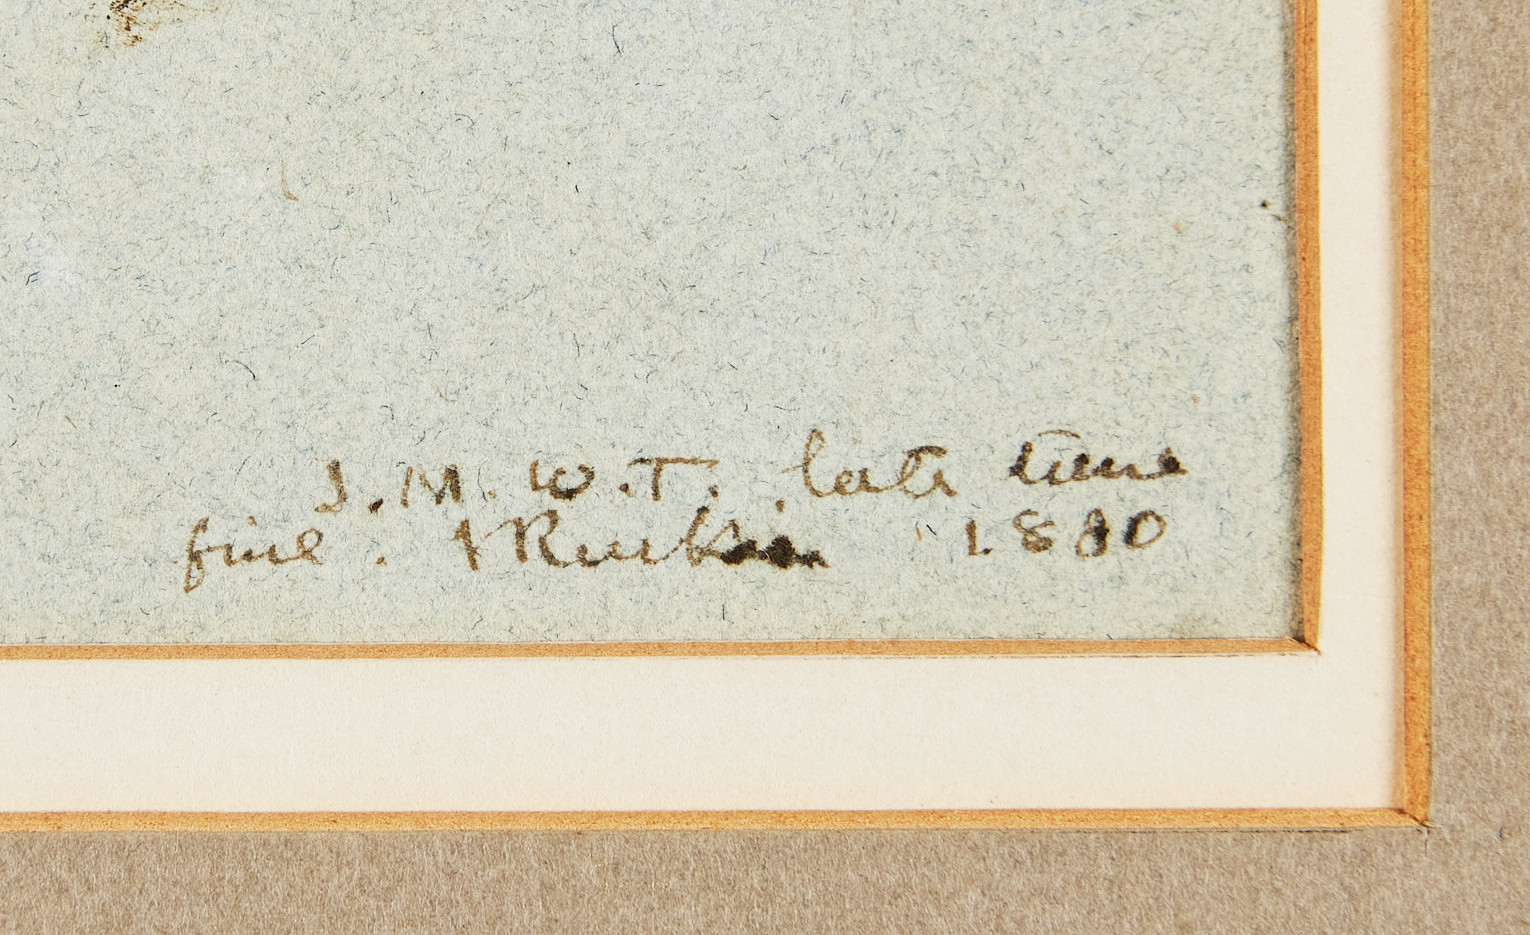 J. M. W. T. late time
fine. JRuskin 1880